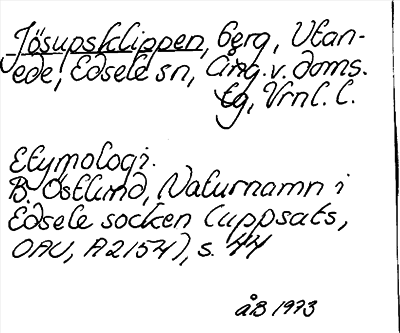 Jösupsklippen, berg, Utan-
ede, Edsele sn, Ång. v. doms.
tg, Vrnl. l.
Etymologi.
B. Östlund, Naturnamn i
Edsele socken (uppsats,
OAU, A2154), s. 44
åB 1973